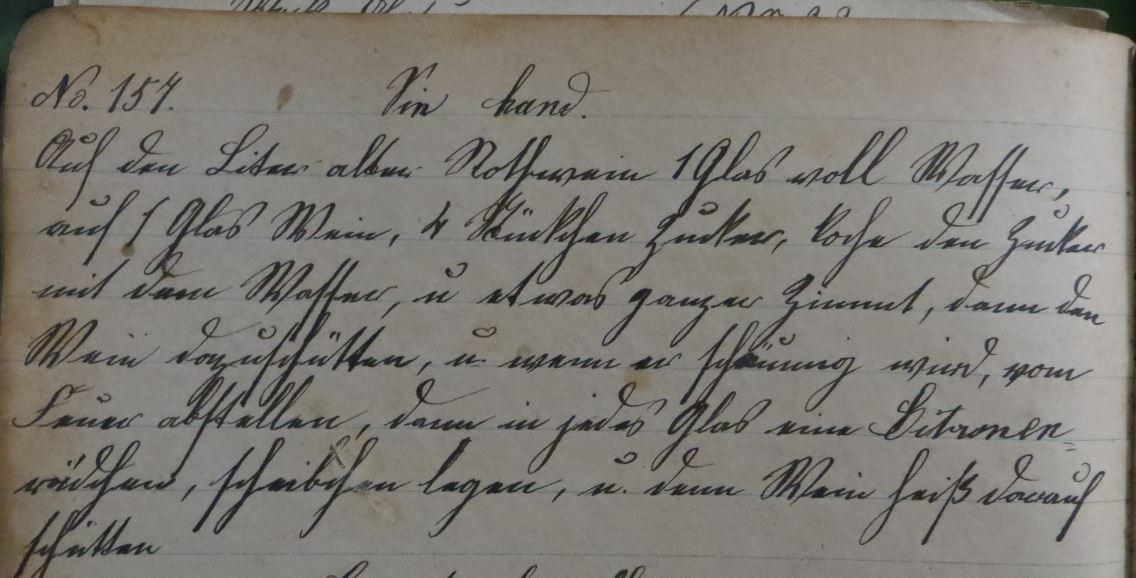 No. 157. Vin chaud.
Auf den Liter alter Rothwein 1 Glas voll Wasser,
auf 1 Glas Wein, 4 Stückchen Zucker, koche den Zucker
mit dem Wasser, u etwas ganzer Zimmt, dann den
Wein dazuschütten, u. wenn er schäumig wird, vom
Feuer abstellen, dann in jedes Glas eine Citronen-
rädchen, scheibchen legen, u. denn Wein heiß darauf
schütten